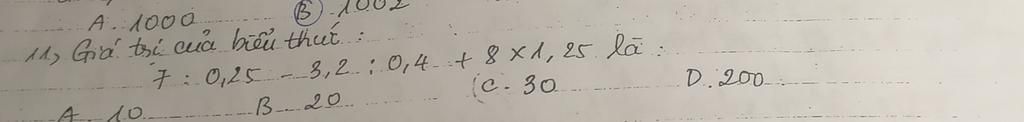 A. 1000 B 1002
11, Giá trị của biểu thức :
7 : 0,25 - 3,2 : 0,4 + 8 x 1,25 là :
A. 10 B. 20 C. 30 D. 200